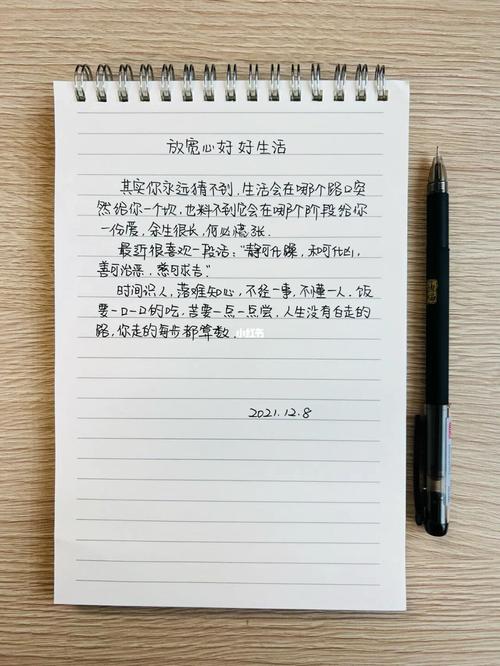 放宽心好好生活
其实你永远猜不到,生活会在哪个路口突
然给你一个坎,也料不到它会在哪个阶段给你
一份爱,余生很长,何必慌张.
最近很喜欢一段话:"静可化躁,和可化凶,
善可治恶,慈可求吉."
时间识人,落难知心,不经一事,不懂一人,饭
要一口一口的吃,苦要一点一点尝,人生没有白走的
路,你走的每步都算数.
小红书
2021.12.8